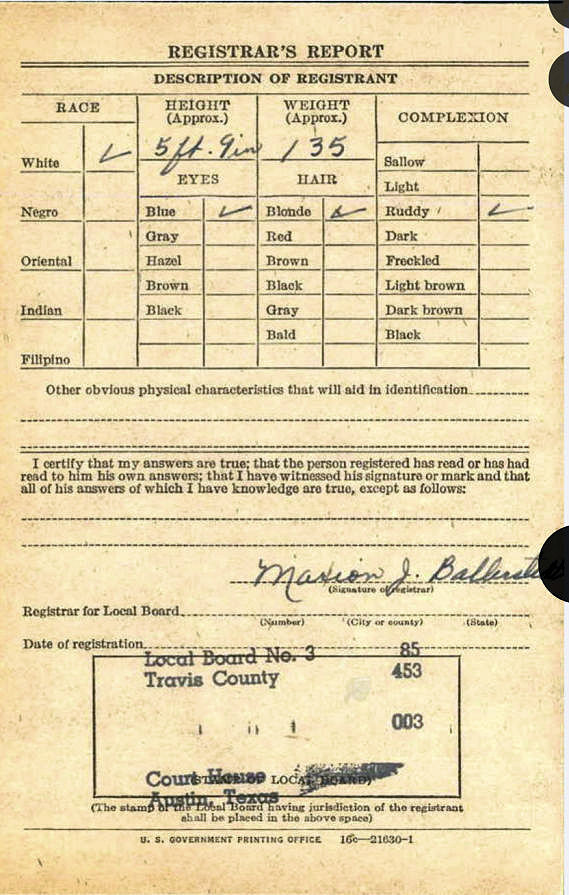 REGISTRAR'S REPORT
DESCRIPTION OF REGISTRANT
RACE
HEIGHT
(Approx.)
WEIGHT
(Approx.)
COMPLEXION
White ✓
5 ft. 9 in
135
Sallow
EYES
HAIR
Light
Negro
Blue ✓
Blonde ✓
Ruddy ✓
Gray
Red
Dark
Oriental
Hazel
Brown
Freckled
Brown
Black
Light brown
Indian
Black
Gray
Dark brown
Bald
Black
Filipino
Other obvious physical characteristics that will aid in identification
I certify that my answers are true; that the person registered has read or has had
read to him his own answers; that I have witnessed his signature or mark and that
all of his answers of which I have knowledge are true, except as follows:
Marion J.
(Signature of registrar)
Registrar for Local Board
(Number) (City or county) (State)
Date of registration
Local Board No. 3 85
Travis County 453
003
Court House
(STAMP OF LOCAL BOARD)
Austin, Texas
(The stamp of the Local Board having jurisdiction of the registrant
shall be placed in the above space)
U. S. GOVERNMENT PRINTING OFFICE 16c—21630-1